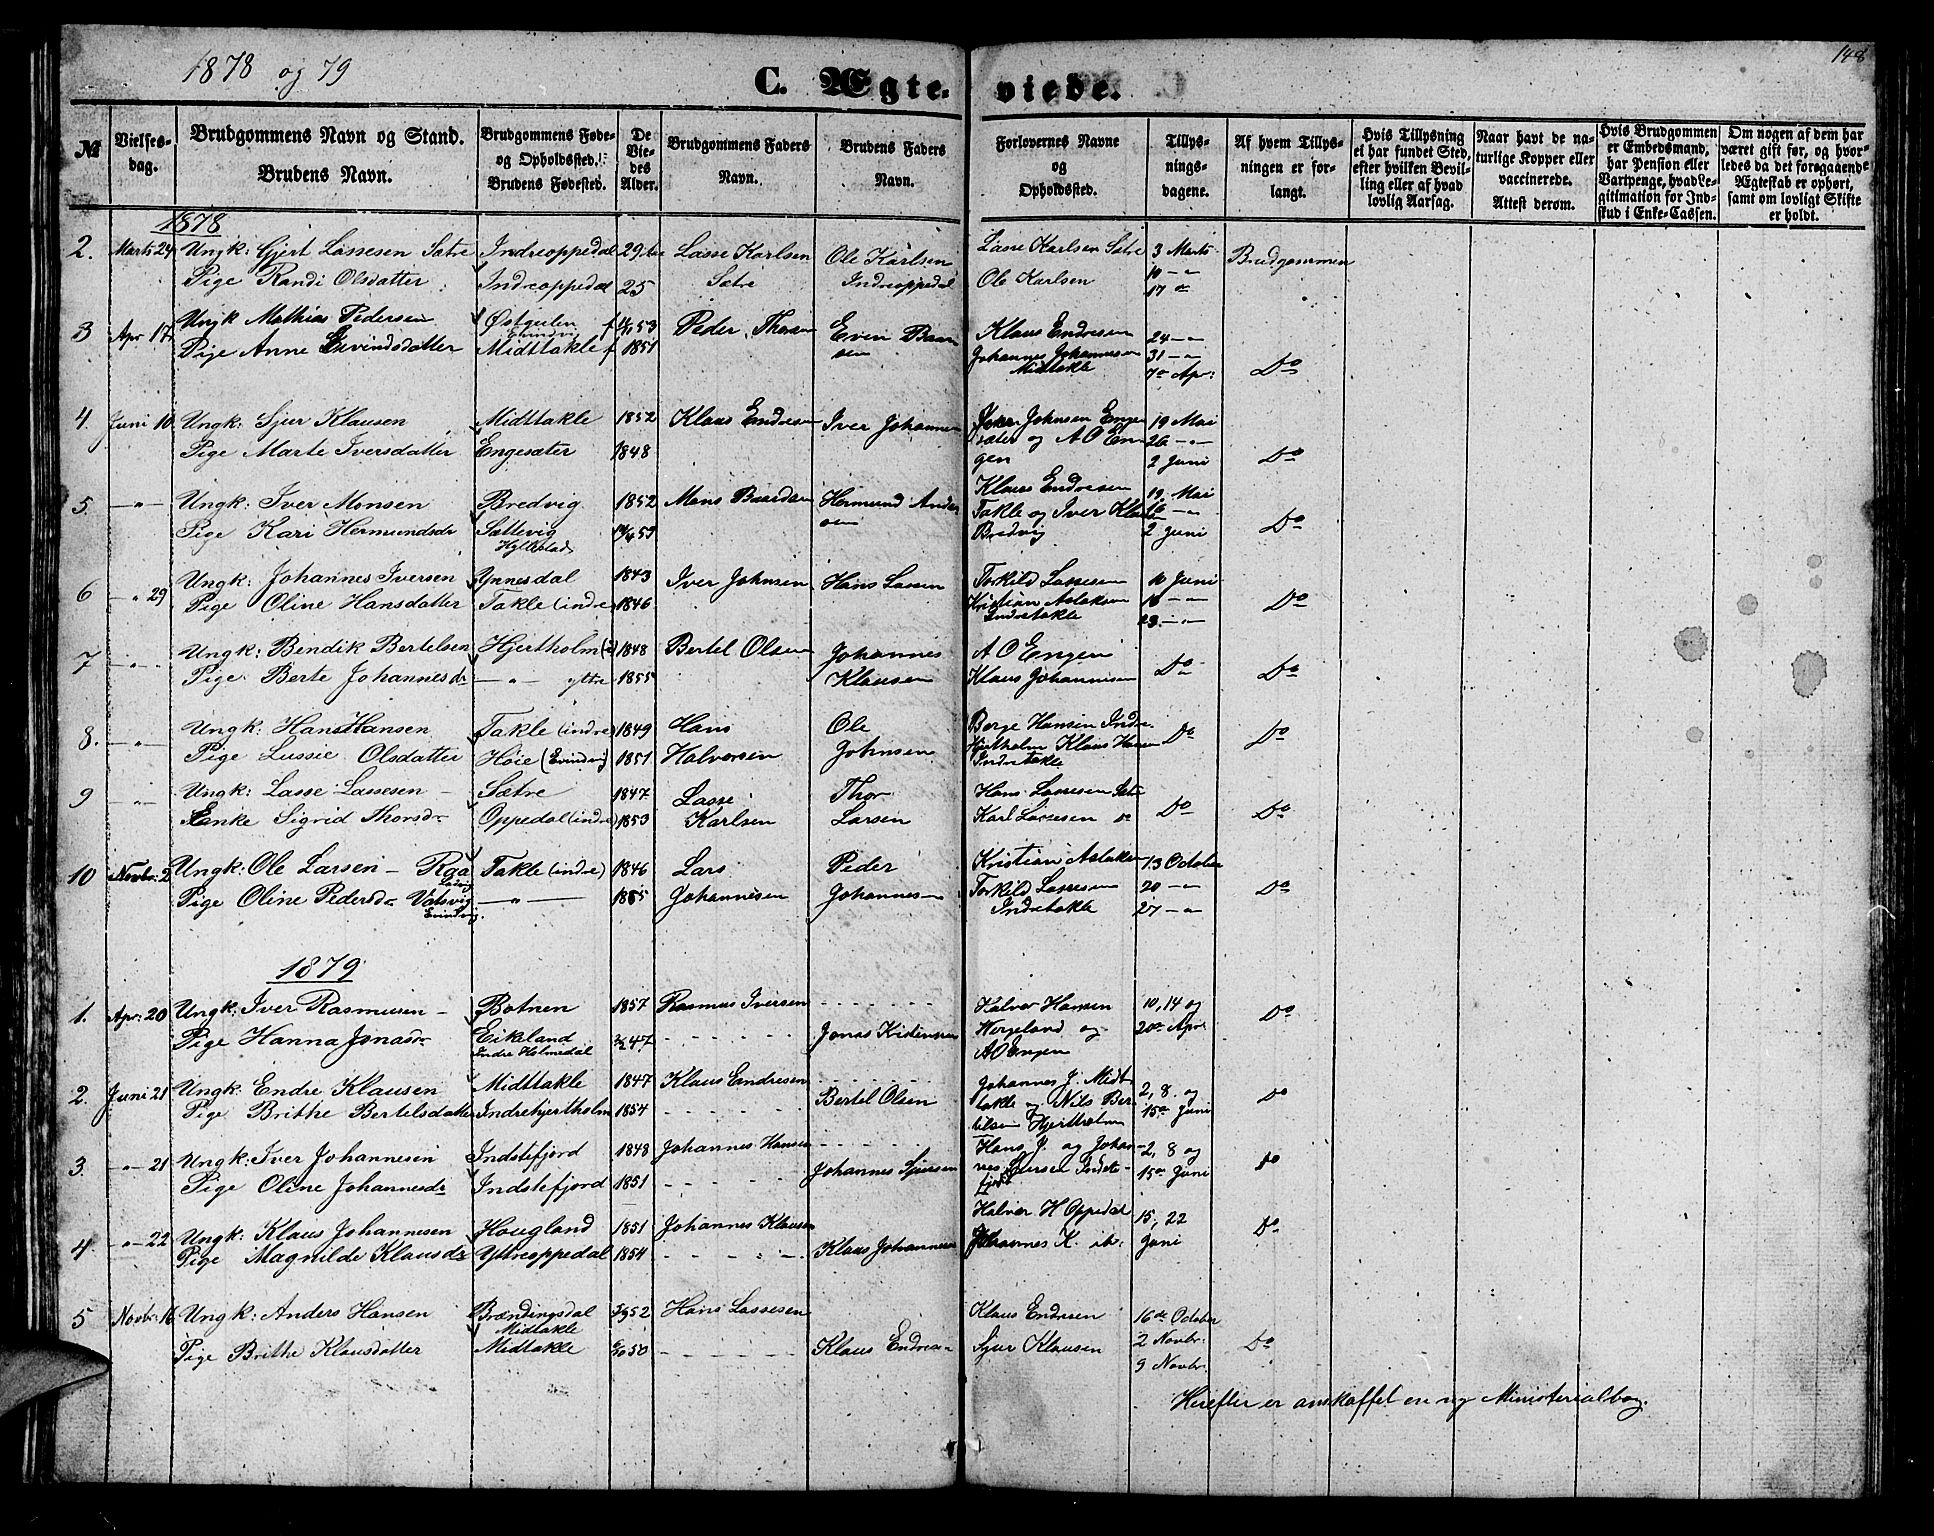 1878 og 79
148
C. Ægteviede.
№
Vielsesdag.
Brudgommens Navn og Stand.
Brudens Navn.
Brudgommens Føde- og Opholdssted.
Brudens Fødested.
De Viedes Alder.
Brudgommens Faders Navn.
Brudens Faders Navn.
Forlovernes Navne og Opholdsted.
Tillysningsdagene.
Af hvem Tillysningen er forlangt.
Hvis Tillysning ei har fundet Sted, efter hvilken Bevilling eller af hvad lovlig Aarsag.
Naar havt de naturlige Kopper eller vaccinerede. Attest derom.
Hvis Brudgommen er Embedsmand, har Pension eller Vartpenge, hvad Legitimation for Indskud i Enke-Cassen.
Om nogen af dem har været gift før, og hvorledes da det foregaaende Ægteskab er ophørt, samt om lovligt Skifte er holdt.
1878
2. Marts 24 Ungk: Gjert Lassesen Sætre Indreoppedal 29 Lasse Karlsen Ole Karlsen Lasse Karlsen Sætre 3 Marts Brudgommen
Pige Randi Olsdatter Indreoppedal 25 Sætre Indreoppedal Ole Karlsen 10 — "
17 de
3 Apr 17 Ungk Mathias Pedersen Østgulen 53 Peder Thorsen Even Baardsen Klaus Endresen 24 — "
Pige Anne Eivindsdatter Midttakle f 1851 Johannes Johannesen 31 — "
Midtakle 7de Apr: Do
4. Juni 10 Ungk: Sjur Klausen Midttakle 1852 Klaus Endresen Iver Johannesen Johnsen Enge- 19 Mai
Pige Marte Iversdatter Engesæter 1848 sæter og A O En- 26 — "
gen 2 Juni Do
5. — " — Ungk: Iver Monsen Bredvig 1852 Mons Baardsen Hermund Anders- Klaus Endresen 19 Mai
Pige Kari Hermundsdr Sættevig 53 sen Takle og Iver Klau 26 — "
Hyllestad Bredvig 2 Juni Do
6 — " 29 Ungk: Johannes Iversen Ynnesdal 1843 Iver Johnsen Hans Lassen Torkild Lassesen 10 Juni
Pige Oline Hansdatter Takle (indre) 1846 Kristian Aslaksen 16 — " Do
Indretakle 23. — "
7 — " Ungk: Bendik Bertelsen Hjertholm (i) 1848 Bertel Olsen Johannes A O Engen
Pige Berte Johannesdr — " — ytre 1855 Klausen Klaus Johannesen Do Do
8. — " — Ungk: Hans Hansen Takle (indre) 1849 Hans Ole Børge Hansen Indre
Pige Lussie Olsdatter Høie (Evindvig) 1851 Halvorsen Johnsen Hjertholm Klaus Hansen Do Do
Indretakle
9 — " — Ungk: Lasse Lassesen — Sætre 1847 Lasse Thor Hans Lassesen Sætre
Enke Sigrid Thorsdr Oppedal (indre) 1853 Karlsen Larsen Karl Lassesen do Do Do
10 Novbr. 2 Ungk: Ole Larsen — Raa Takle (indre) 1846 Lars Peder Kristian Aslaksen 13 October
Ladvig Torkild Lassesen 20 — " Do
Pige Oline Pedersdr Vatsvig — " — 1855 Johannesen Johannesen Indretakle 27 — "
Evindvig.
1879
1. Apr: 20 Ungk: Iver Rasmusen — Botnen 1857 Rasmus Iversen - - - - - Halvor Hansen 10, 14 og
Pige Hanna Jonasdr Eikeland 47 - - - - - Jonas Kristensen Wergeland og 20de Apr: Do
Indre Holmedal A O Engen
2. Juni 21 Ungk: Endre Klausen Midttakle 1847 Klaus Endresen - - - - - Johannes J. Midt
Pige Brithe Bertelsdatter Indrehjertholm 1854 - - - - - Bertel Olsen takle og Nils Ber 2, 8. og Do
telsen Hjertholm 15de Juni
3. — " — 21 Ungk: Iver Johannesen Indstefjord 1848 Johannes Hansen - - - - - Hans J. og Johan- 2, 8 og
Pige Oline Johannesdr Indstefjord 1851 - - - - - Johannes Sjursen nes Indste- 15de Juni do
fjord
4 — " — 22 Ungk: Klaus Johannesen Hougland 1851 Johannes Klausen Halvor H Oppedal 15, 22
Pige Magnilde Klausdr Ytreoppedal 1854 - - - - - Klaus Johannesen Johannes K. ib. Juni Do
5 Novbr: 16 Ungk: Anders Hansen Brændingsdal 52 Hans Lassesen Klaus Endresen 16de October
Midtakle 2 Novbr:
Pige Brithe Klausdatter Midttakle 50 - - - - - Klaus Endresen Sjur Klausen Do
9 Novbr.
Herefter er anskaffet en ny Ministerialbog.